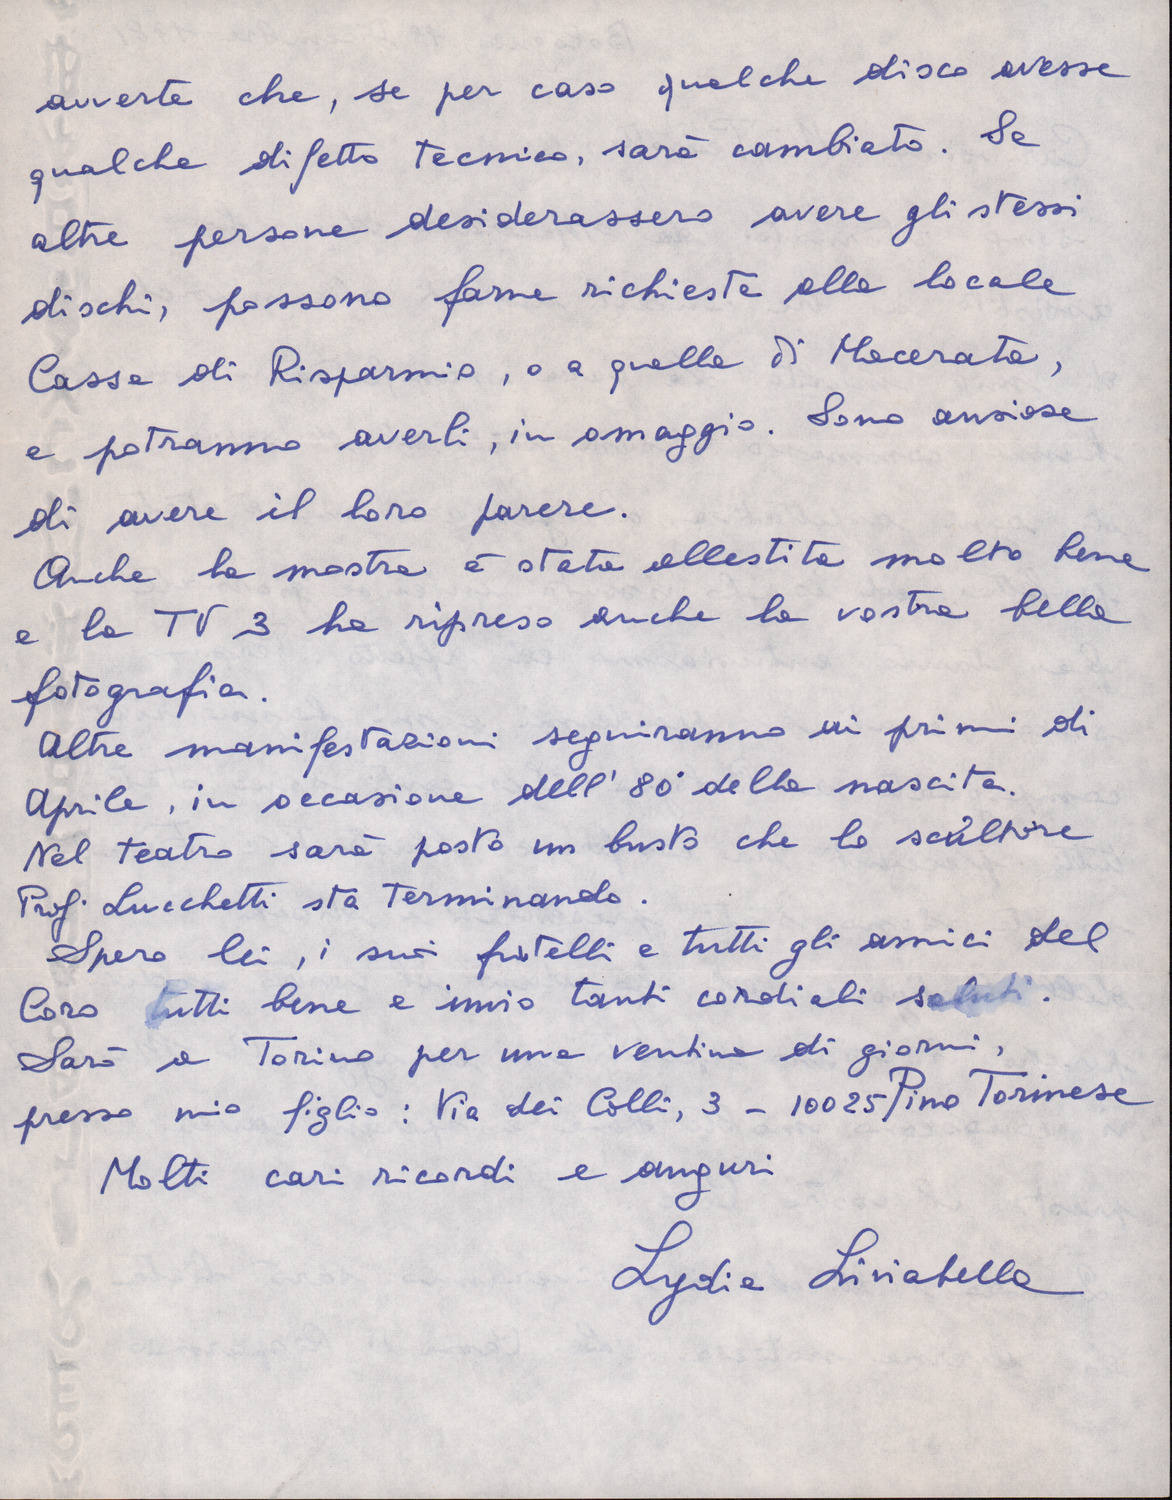 avverte che, se per caso qualche disco avesse
qualche difetto tecnico, sarà cambiato. Se
altre persone desiderassero avere gli stessi
dischi, possono farne richiesta alla locale
Cassa di Risparmio, o a quella di Macerata,
e potranno averli, in omaggio. Sono ansiosa
di avere il loro parere.
Anche la mostra è stata allestita molto bene
e la TV 3 ha ripreso anche la vostra bella
fotografia.
Altre manifestazioni seguiranno ai primi di
Aprile, in occasione dell' 80° della nascita.
Nel teatro sarà posto un busto che lo scultore
Prof. Lucchetti sta terminando.
Spero lei, i suoi fratelli e tutti gli amici del
Coro tutti bene e invio tanti cordiali saluti.
Sarò a Torino per una ventina di giorni,
presso mio figlio: Via dei Colli, 3 - 10025 Pino Torinese
Molti cari ricordi e auguri
Lydia Liviabella